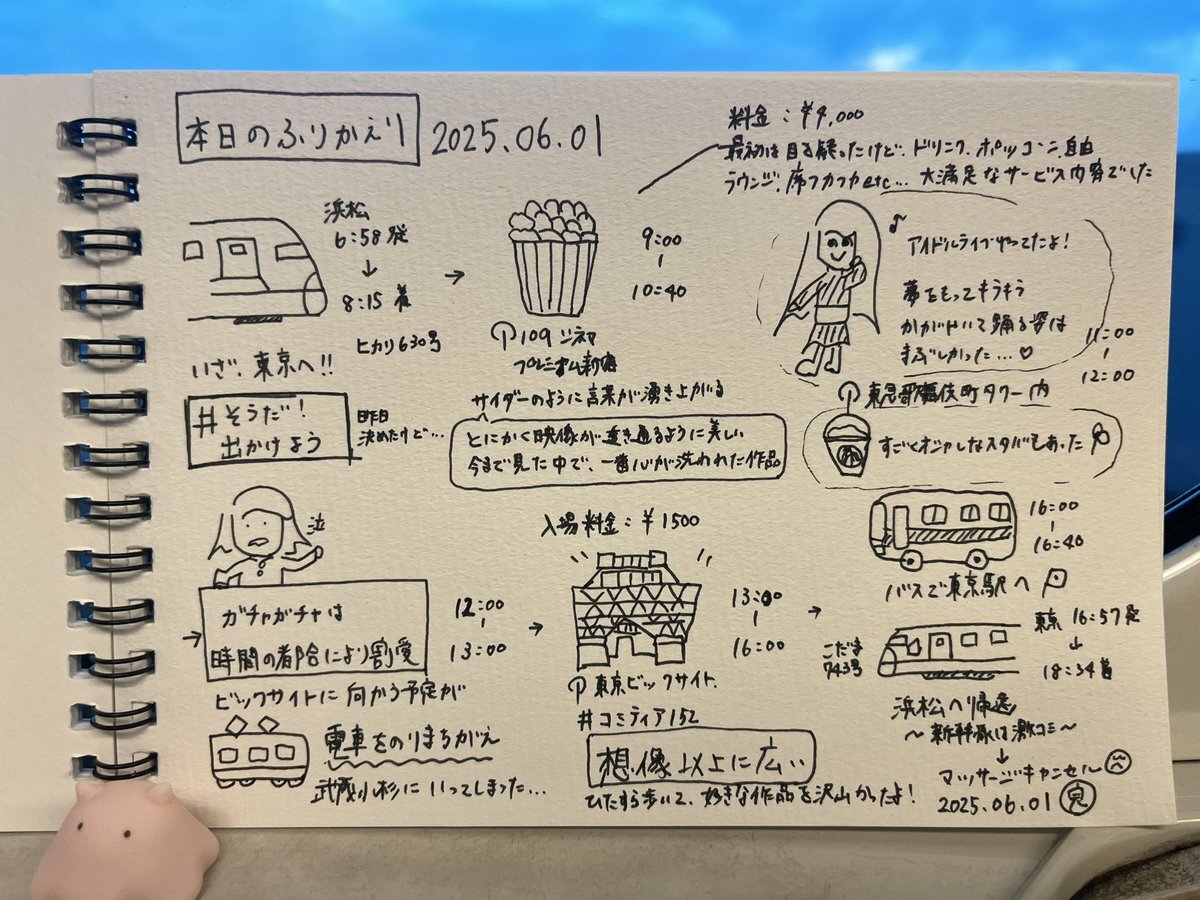 本日のふりかえり 2025.06.01
浜松
6:58発
↓
8:15着
ヒカリ630号
いざ、東京へ!!
#そうだ!
出かけよう
昨日
決めたけど…
料金:¥9,000
最初は目を疑ったけど、ドリンク、ポップコーン自由
ラウンジ、席フカフカetc… 大満足なサービス内容でした
→
9:00
10:40
109シネマ
プレミアム新宿
サイダーのように言葉が湧き上がる
とにかく映像が透き通るように美しい
今まで見た中で、一番心が洗われた作品
♪
アイドルライブやってたよ!
夢をもってキラキラ
かがやいて踊る姿は
まぶしかった…♡
11:00
12:00
東急歌舞伎町タワー内
すごくオシャレなスタバもあった
泣
→
ガチャガチャは
時間の都合により割愛
12:00
13:00
ビックサイトに向かう予定が
電車をのりまちがえ
武蔵小杉にいってしまった…
→
入場料金:¥1500
13:00
16:00
東京ビックサイト
#コミティア152
想像以上に広い
ひたすら歩いて、好きな作品を沢山かったよ!
→
16:00
16:40
バスで東京駅へ
こだま
743号
東京 16:57発
↓
18:34着
浜松へ帰還
～新幹線は激コミ～
↓
マッサージキャンセル
2025.06.01